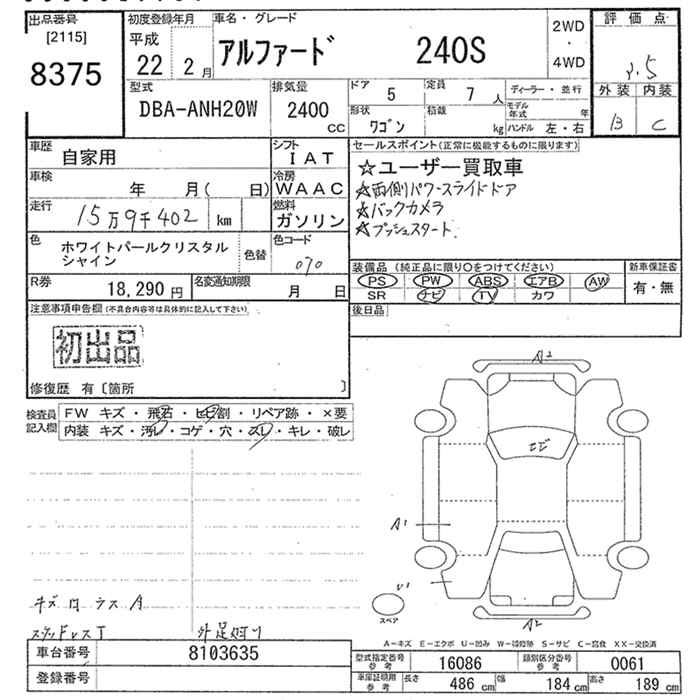 出品番号
[2115]
8375
初度登録年月
平成
22 2月
車名・グレード
アルファード 240S
2WD
・
4WD
評価点
3.5
外装 内装
B C
型式
DBA-ANH20W
排気量
2400
CC
ドア 5
定員 7人
形状 ワゴン
積載 kg
ディーラー・並行
モデル年式 年
ハンドル 左・右
車歴 自家用
シフト IAT
車検 年 月( 日)
冷房 WAAC
走行 15万9千402 km
燃料 ガソリン
色 ホワイトパールクリスタル
シャイン
色替
色コード 070
R券 18,290円
名変通知期限 月 日
セールスポイント(正常に機能するものに限ります)
☆ユーザー買取車
☆両側パワースライドドア
☆バックカメラ
☆プッシュスタート
装備品 (純正品に限り○をつけてください)
PS PW ABS エアB AW
SR ナビ TV カワ
新車保証書
有・無
後日品
注意事項申告欄(不具合内容等は具体的に記入して下さい)
初出品
修復歴 有〔箇所 〕
検査員
記入欄
FW キズ・飛石・ヒビ割・リペア跡・×要
内装 キズ・汚レ・コゲ・穴・スレ・キレ・破レ
A2
A1
U1
A2
スペア
キズ
スタッドレス
A-キズ E-エクボ U-凹み W-補修跡 S-サビ C-腐食 XX-交換済
車台番号 8103635
登録番号
型式指定番号
参考
16086
類別区分番号
参考
0061
車庫証明用
参考
長さ 486cm 幅 184cm 高さ 189cm